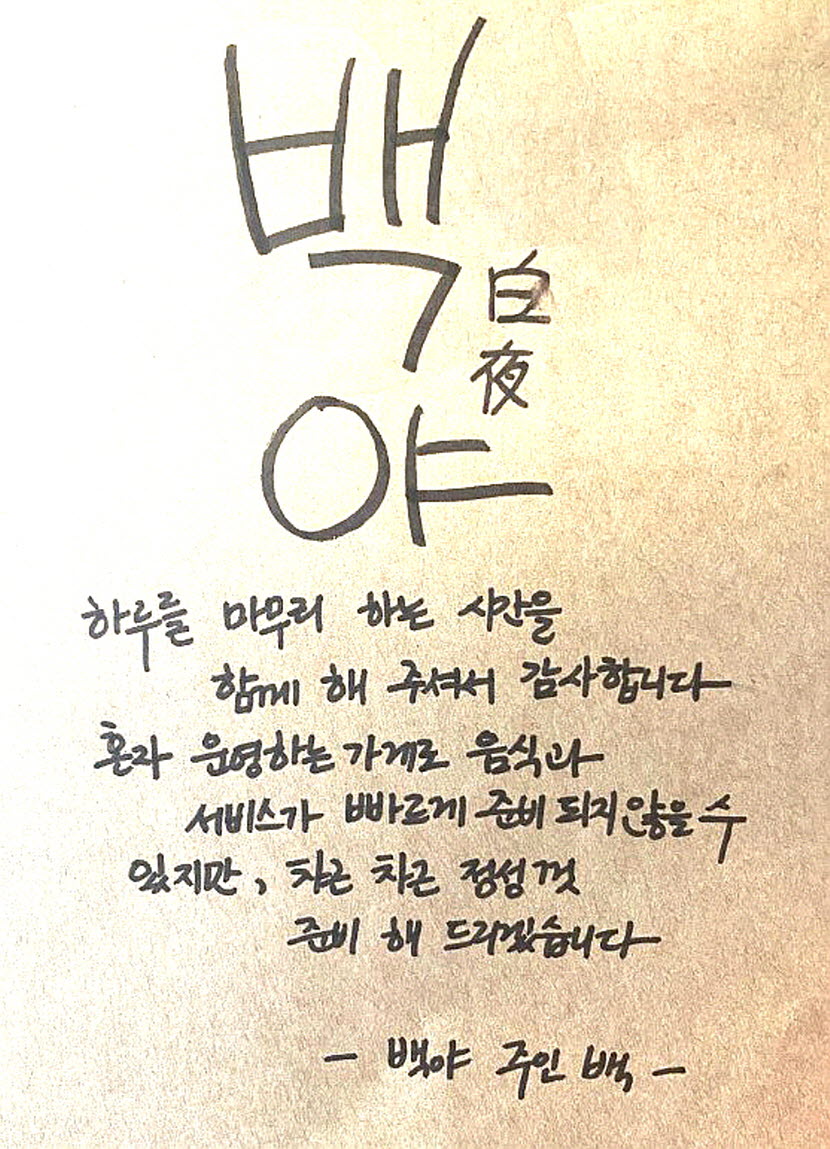 백야
白夜
하루를 마무리 하는 시간을
함께 해 주셔서 감사합니다
혼자 운영하는 가게로 음식과
서비스가 빠르게 준비 되지 않을 수
있지만, 차근 차근 정성껏
준비 해 드리겠습니다
- 백야 주인 백 -